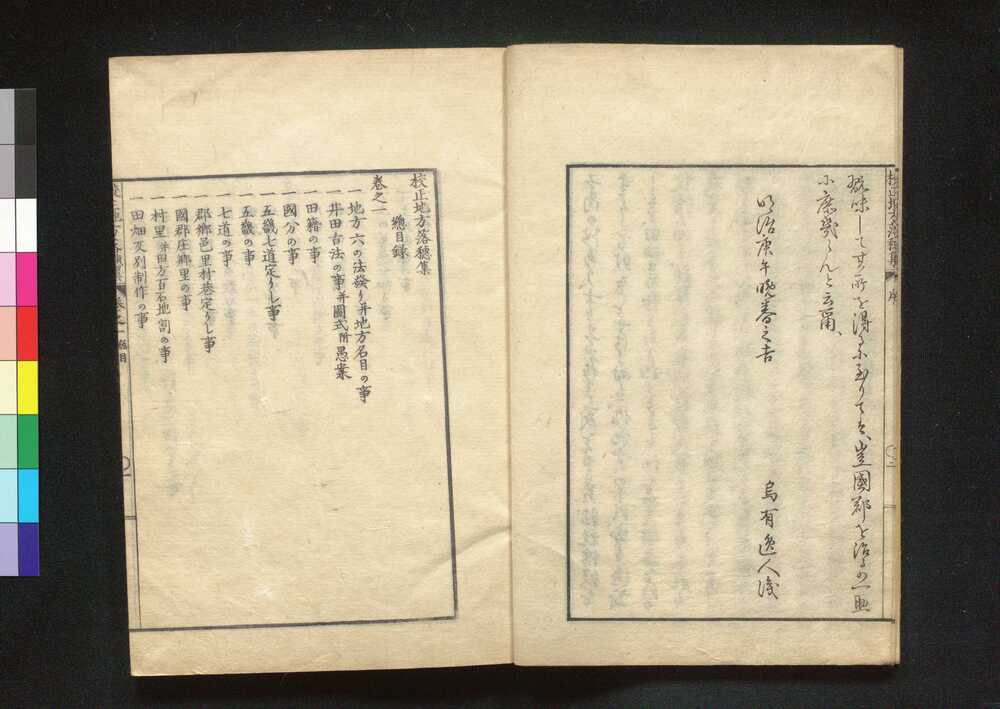 玩味して其所を得るに至りては、豈國郡を治るの一助
に庶幾らんと云爾、
明治庚午晩春之吉
烏有逸人識
校正地方落穂集
序
校正地方落穂集
總目録
卷之一
一 地方六の法發り并地方名目の事
一 井田古法の事并圖式附愚案
一 田籍の事
一 國分の事
一 五畿七道定りし事
一 五畿の事
一 七道の事
一 郡郷邑里村巷定りし事
一 國郡庄郷里の事
一 村里并田方百石地割の事
一 田畑反別制作の事
卷之一 總目